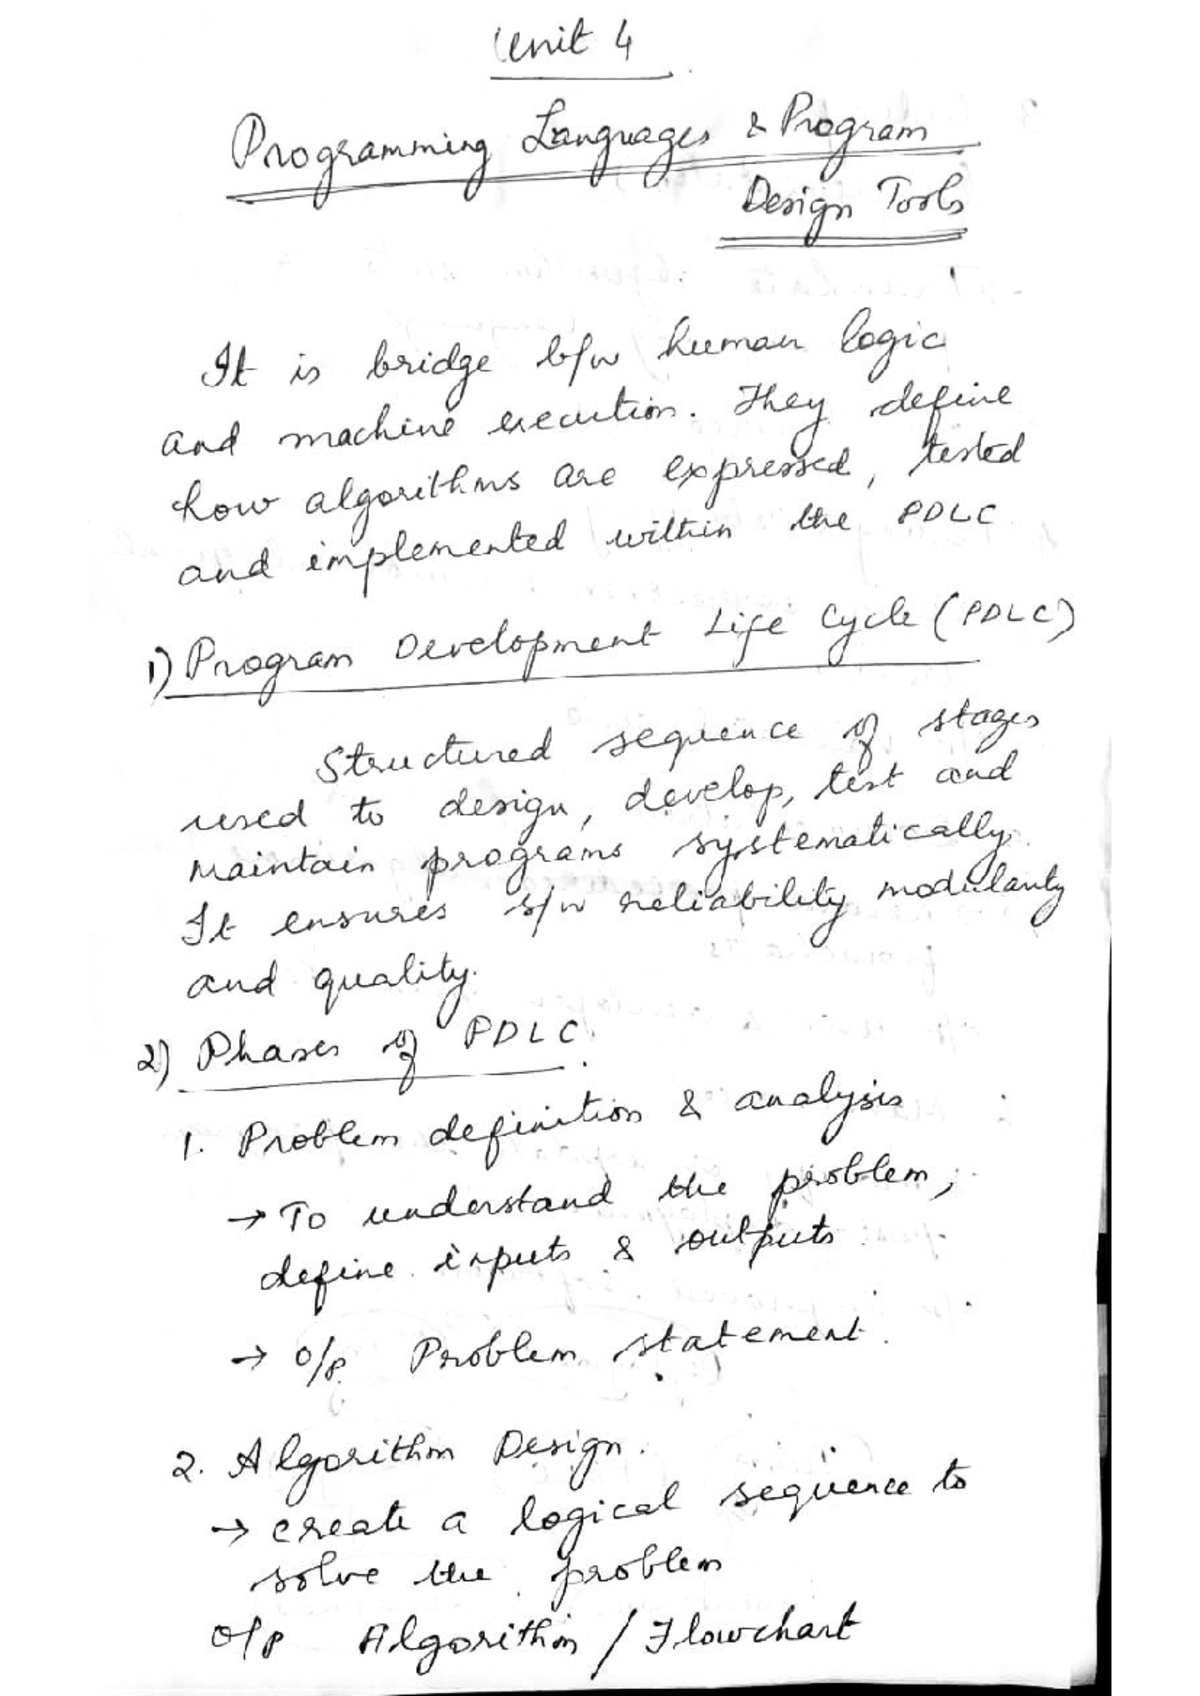 Unit 4
Programming Languages & Program
Design Tools
It is bridge b/w human logic
and machine execution. They define
how algorithms are expressed, tested
and implemented within the PDLC
1) Program Development Life Cycle (PDLC)
Structured sequence of stages
used to design, develop, test and
maintain programs systematically.
It ensures s/w reliability modularity
and quality.
2) Phases of PDLC.
1. Problem definition & analysis
→ To understand the problem,
define inputs & outputs
→ o/p Problem statement.
2. Algorithm Design.
→ create a logical sequence to
solve the problem
o/p Algorithm / Flowchart